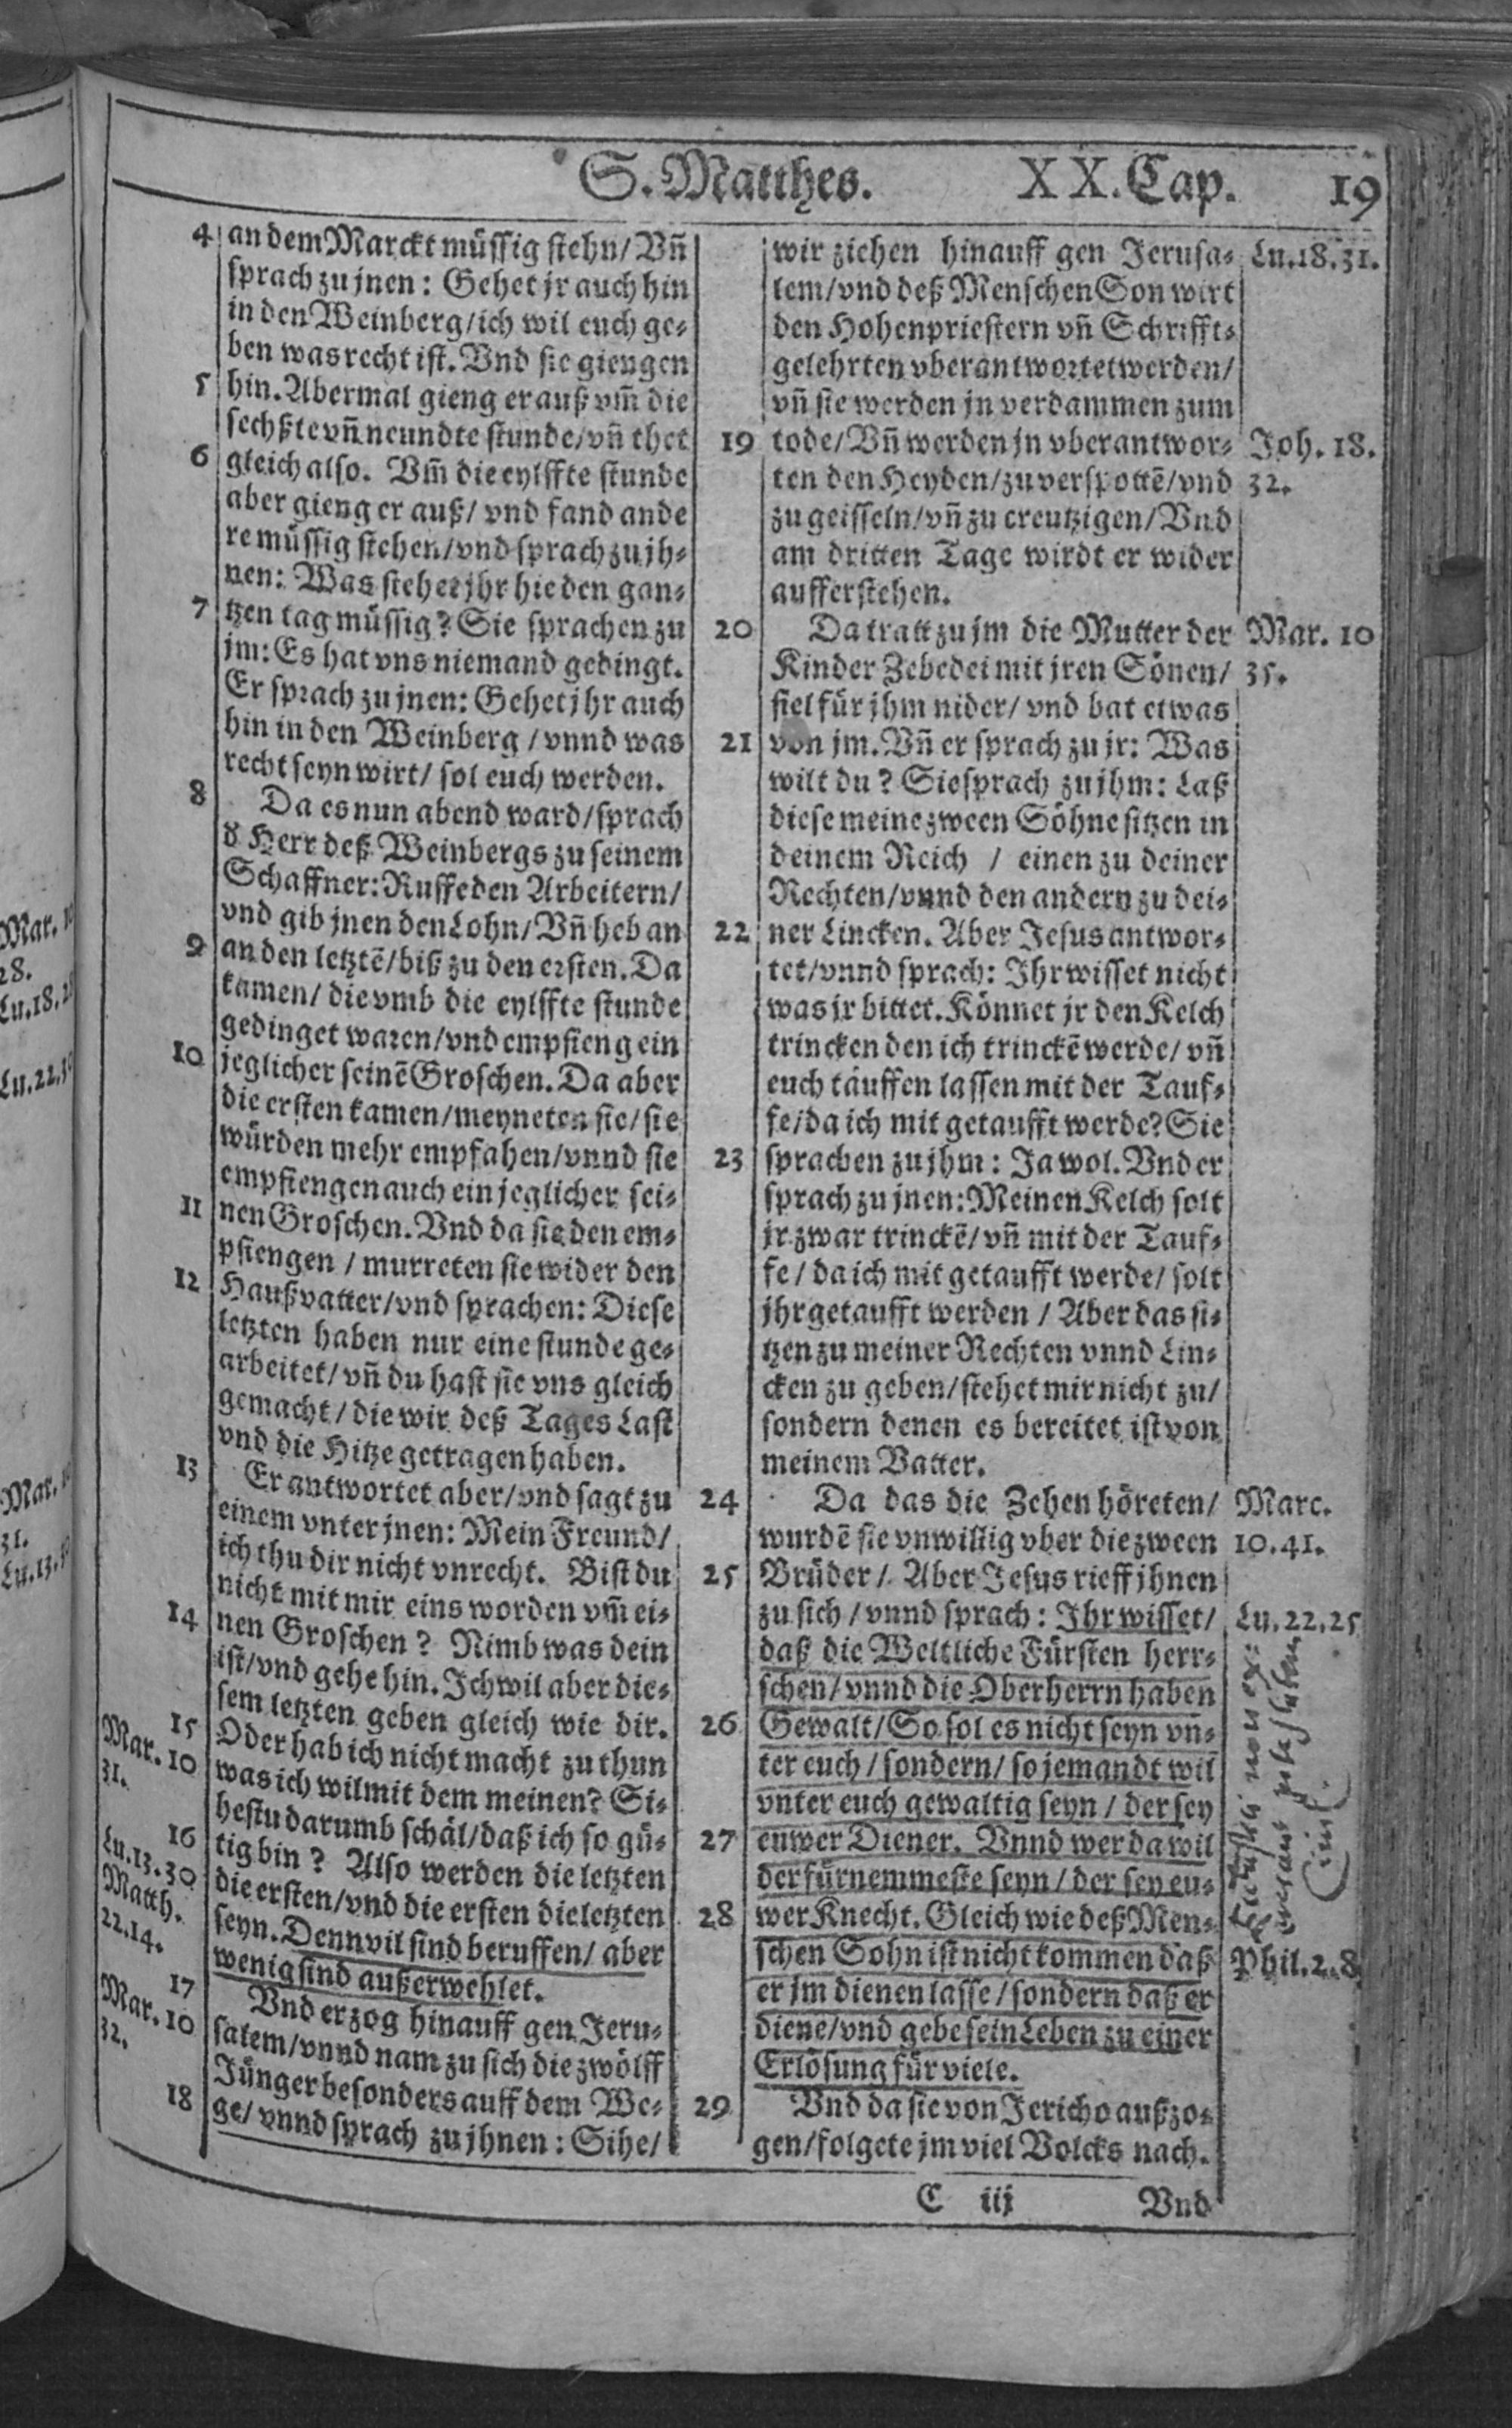 S. Matthes. XX. Cap. 19
4 an dem Marckt müssig stehn/ Vñ
sprach zu jnen: Gehet jr auch hin
in den Weinberg/ ich wil euch ge-
ben was recht ist. Vnd sie giengen
5 hin. Abermal gieng er auß vm̃ die
sechßte vñ neundte stunde/ vñ thet
6 gleich also. Vm̃ die eylffte stunde
aber gieng er auß/ vnd fand ande
re müssig stehen/ vnd sprach zu jh-
nen: Was stehet jhr hie den gan-
7 tzen tag müssig? Sie sprachen zu
jm: Es hat vns niemand gedingt.
Er sprach zu jnen: Gehet jhr auch
hin in den Weinberg / vnnd was
recht seyn wirt/ sol euch werden.
8 Da es nun abend ward/ sprach
d Herr deß Weinbergs zu seinem
Schaffner: Ruffe den Arbeitern/
vnd gib jnen den Lohn/ Vñ heb an
9 an den letztē/ biß zu den ersten. Da
kamen/ die vmb die eylffte stunde
gedinget waren/ vnd empfieng ein
10 jeglicher seinē Groschen. Da aber
die ersten kamen/ meyneten sie/ sie
würden mehr empfahen/ vnnd sie
empfiengen auch ein jeglicher sei-
11 nen Groschen. Vnd da sie den em-
pfiengen / murreten sie wider den
12 Haußvatter/ vnd sprachen: Diese
letzten haben nur eine stunde ge-
arbeitet/ vñ du hast sie vns gleich
gemacht/ die wir deß Tages Last
vnd die Hitze getragen haben.
13 Er antwortet aber/ vnd sagt zu
einem vnter jnen: Mein Freund/
ich thu dir nicht vnrecht. Bist du
nicht mit mir eins worden vm̃ ei-
14 nen Groschen? Nimb was dein
ist/ vnd gehe hin. Ich wil aber die-
sem letzten geben gleich wie dir.
15 Oder hab ich nicht macht zu thun
Mar. 10
31.
was ich wil mit dem meinen? Si-
hestu darumb schäl/ daß ich so gü-
16 tig bin? Also werden die letzten
Lu. 13. 30
die ersten/ vnd die ersten die letzten
Matth.
22. 14.
seyn. Denn vil sind beruffen/ aber
wenig sind außerwehlet.
17 Vnd er zog hinauff gen Jeru-
Mar. 10
32.
salem/ vnnd nam zu sich die zwölff
Jünger besonders auff dem We-
18 ge/ vnnd sprach zu jhnen: Sihe/
wir ziehen hinauff gen Jerusa- Lu. 18. 31.
lem/ vnd deß Menschen Son wirt
den Hohenpriestern vñ Schrifft-
gelehrten vberantwortet werden/
vñ sie werden jn verdammen zum
19 tode/ Vñ werden jn vberantwor- Joh. 18.
ten den Heyden/ zu verspottē/ vnd 32.
zu geisseln/ vñ zu creutzigen/ Vnd
am dritten Tage wirdt er wider
aufferstehen.
20 Da tratt zu jm die Mutter der Mar. 10
Kinder Zebedei mit jren Sönen/ 35.
fiel für jhm nider/ vnd bat etwas
21 von jm. Vñ er sprach zu jr: Was
wilt du? Sie sprach zu jhm: Laß
diese meine zween Söhne sitzen in
deinem Reich / einen zu deiner
Rechten/ vnnd den andern zu dei-
22 ner Lincken. Aber Jesus antwor-
tet/ vnnd sprach: Ihr wisset nicht
was jr bittet. Könnet jr den Kelch
trincken den ich trinckē werde/ vñ
euch täuffen lassen mit der Tauf-
fe/ da ich mit getaufft werde? Sie
23 sprachen zu jhm: Ja wol. Vnd er
sprach zu jnen: Meinen Kelch solt
jr zwar trinckē/ vñ mit der Tauf-
fe/ da ich mit getaufft werde/ solt
jhr getaufft werden / Aber das si-
tzen zu meiner Rechten vnnd Lin-
cken zu geben/ stehet mir nicht zu/
sondern denen es bereitet ist von
meinem Vatter.
24 Da das die Zehen höreten/ Marc.
wurdē sie vnwillig vber die zween 10. 41.
25 Brüder/ Aber Jesus rieff jhnen
zu sich / vnnd sprach: Ihr wisset/ Lu. 22. 25
daß die Weltliche Fürsten herr-
schen/ vnnd die Oberherrn haben
26 Gewalt/ So sol es nicht seyn vn-
ter euch/ sondern/ so jemandt wil
vnter euch gewaltig seyn / der sey
27 euwer Diener. Vnnd wer da wil
der fürnemmeste seyn/ der sey eu-
28 wer Knecht. Gleich wie deß Men-
schen Sohn ist nicht kommen daß Phil. 2. 8
er jm dienen lasse/ sondern daß er
diene/ vnd gebe sein Leben zu einer
Erlösung für viele.
29 Vnd da sie von Jericho außzo-
gen/ folgete jm viel Volcks nach.
C iij Vnd
Lu. 18.
Mar.
28.
Lu. 22.
Mar.
31.
Lu. 13.